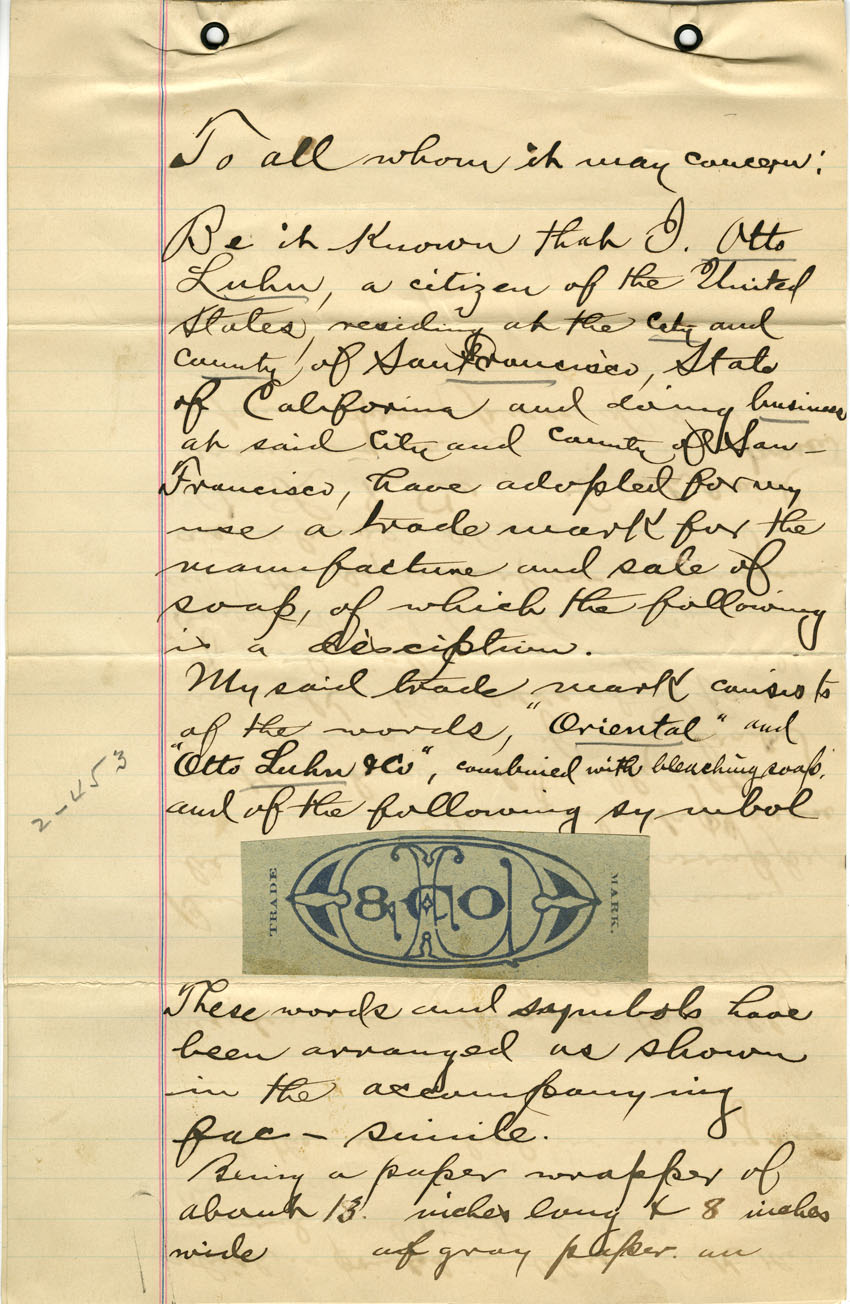 To all whom it may concern:
Be it known that I. Otto
Luhn, a citizen of the United
States, residing at the city and
county, of San Francisco, State
of California and doing business
at said City and County of San-
Francisco, have adopted for my
use a trade mark for the
manufacture and sale of
soap, of which the following
is a discription.
My said trade mark consists
of the words, "Oriental" and
"Otto Luhn & Co", combined with bleaching soap,
and of the following symbol
TRADE
8
CO
MARK.
These words and symbols have
been arranged as shown
in the accompanying
fac-simile.
Being a paper wrapper of
about 13. inches long & 8 inches
wide of gray paper. an
2-453